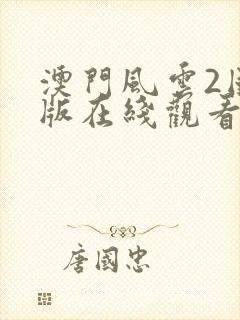 澳門風雲2
版在綫觀看
唐國忠